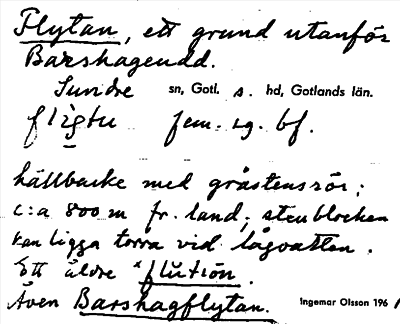 Flytan, ett grund utanför
Barshageudd.
Sundre sn, Gotl. s. hd, Gotlands län.
flìgtu fem. sg. bf.
hällbacke med gråstensrör;
c:a 800 m fr. land; stenblocken
kan ligga torra vid lågvatten.
Ett äldre *flution.
Även Barshagflytan.
Ingemar Olsson 196